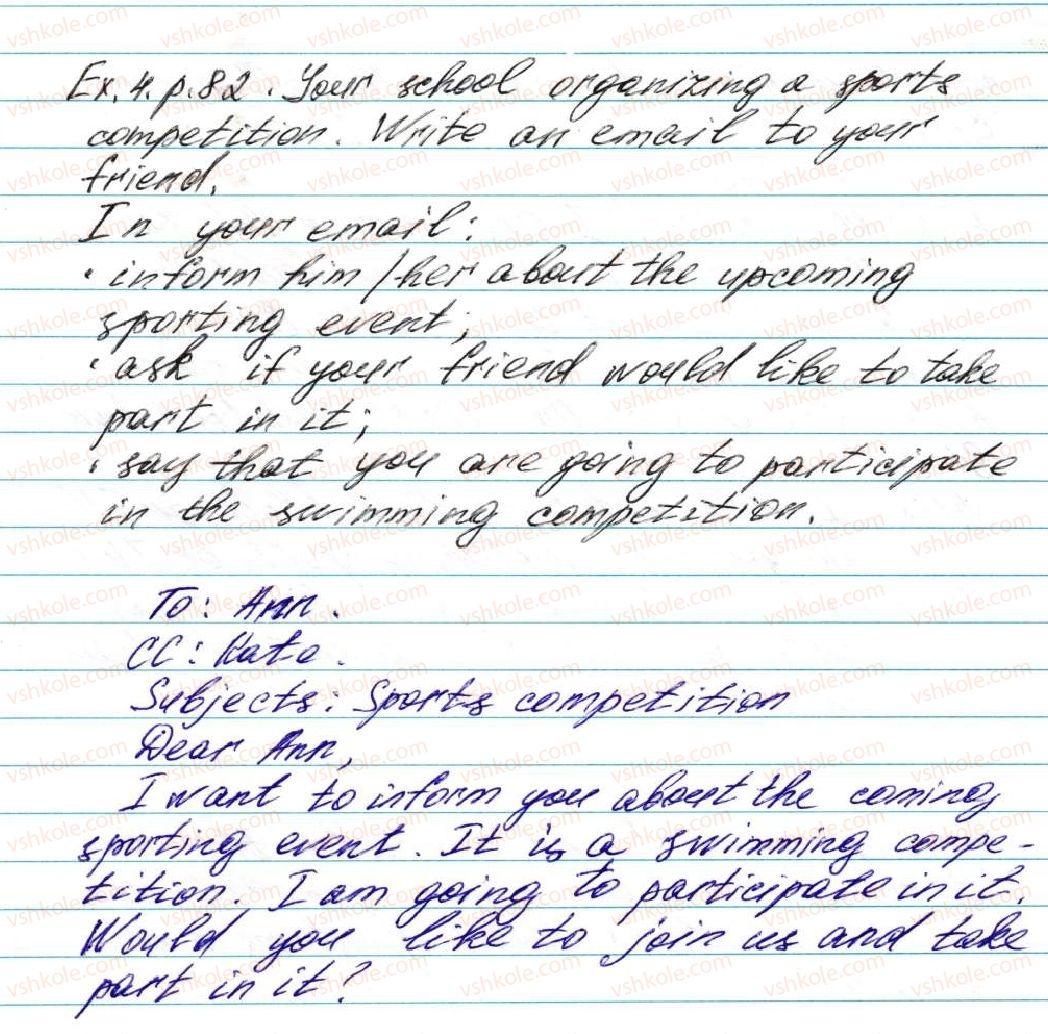 Ex. 4. p. 82. Your school organizing a sports
competition. Write an email to your
friend.
In your email:
• inform him/her about the upcoming
sporting event;
• ask if your friend would like to take
part in it;
• say that you are going to participate
in the swimming competition.
To: Ann.
CC: Kate.
Subjects: Sports competition
Dear Ann,
I want to inform you about the coming
sporting event. It is a swimming compe-
tition. I am going to participate in it.
Would you like to join us and take
part in it?